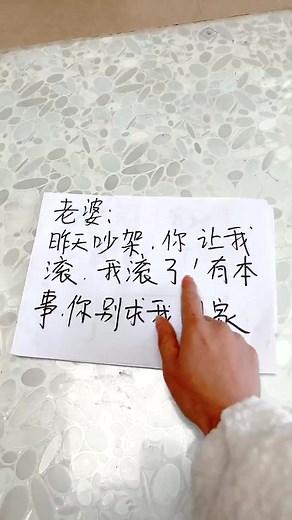 老婆:
昨天吵架.你让我
滚.我滚了!有本
事.你别求我 家